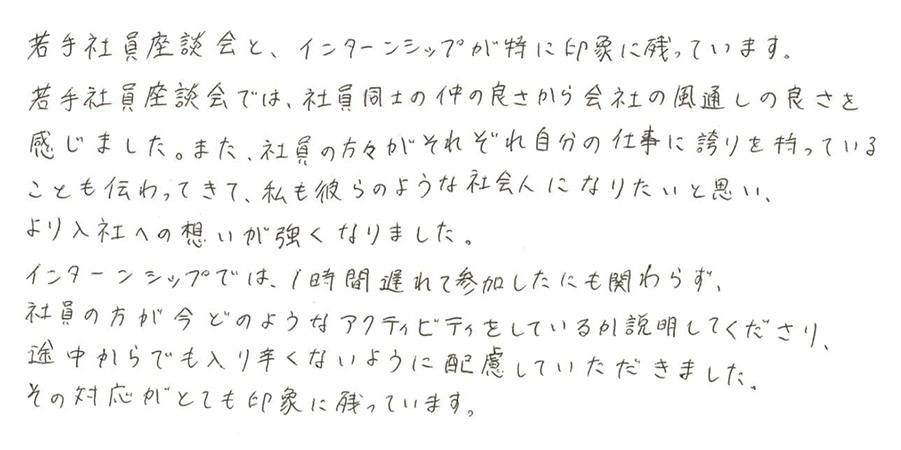 若手社員座談会と、インターンシップが特に印象に残っています。
若手社員座談会では、社員同士の仲の良さから会社の風通しの良さを
感じました。また、社員の方々がそれぞれ自分の仕事に誇りを持っている
ことも伝わってきて、私も彼らのような社会人になりたいと思い、
より入社への想いが強くなりました。
インターンシップでは、1時間遅れて参加したにも関わらず、
社員の方が今どのようなアクティビティをしているか説明してくださり、
途中からでも入り辛くないように配慮していただきました。
その対応がとても印象に残っています。